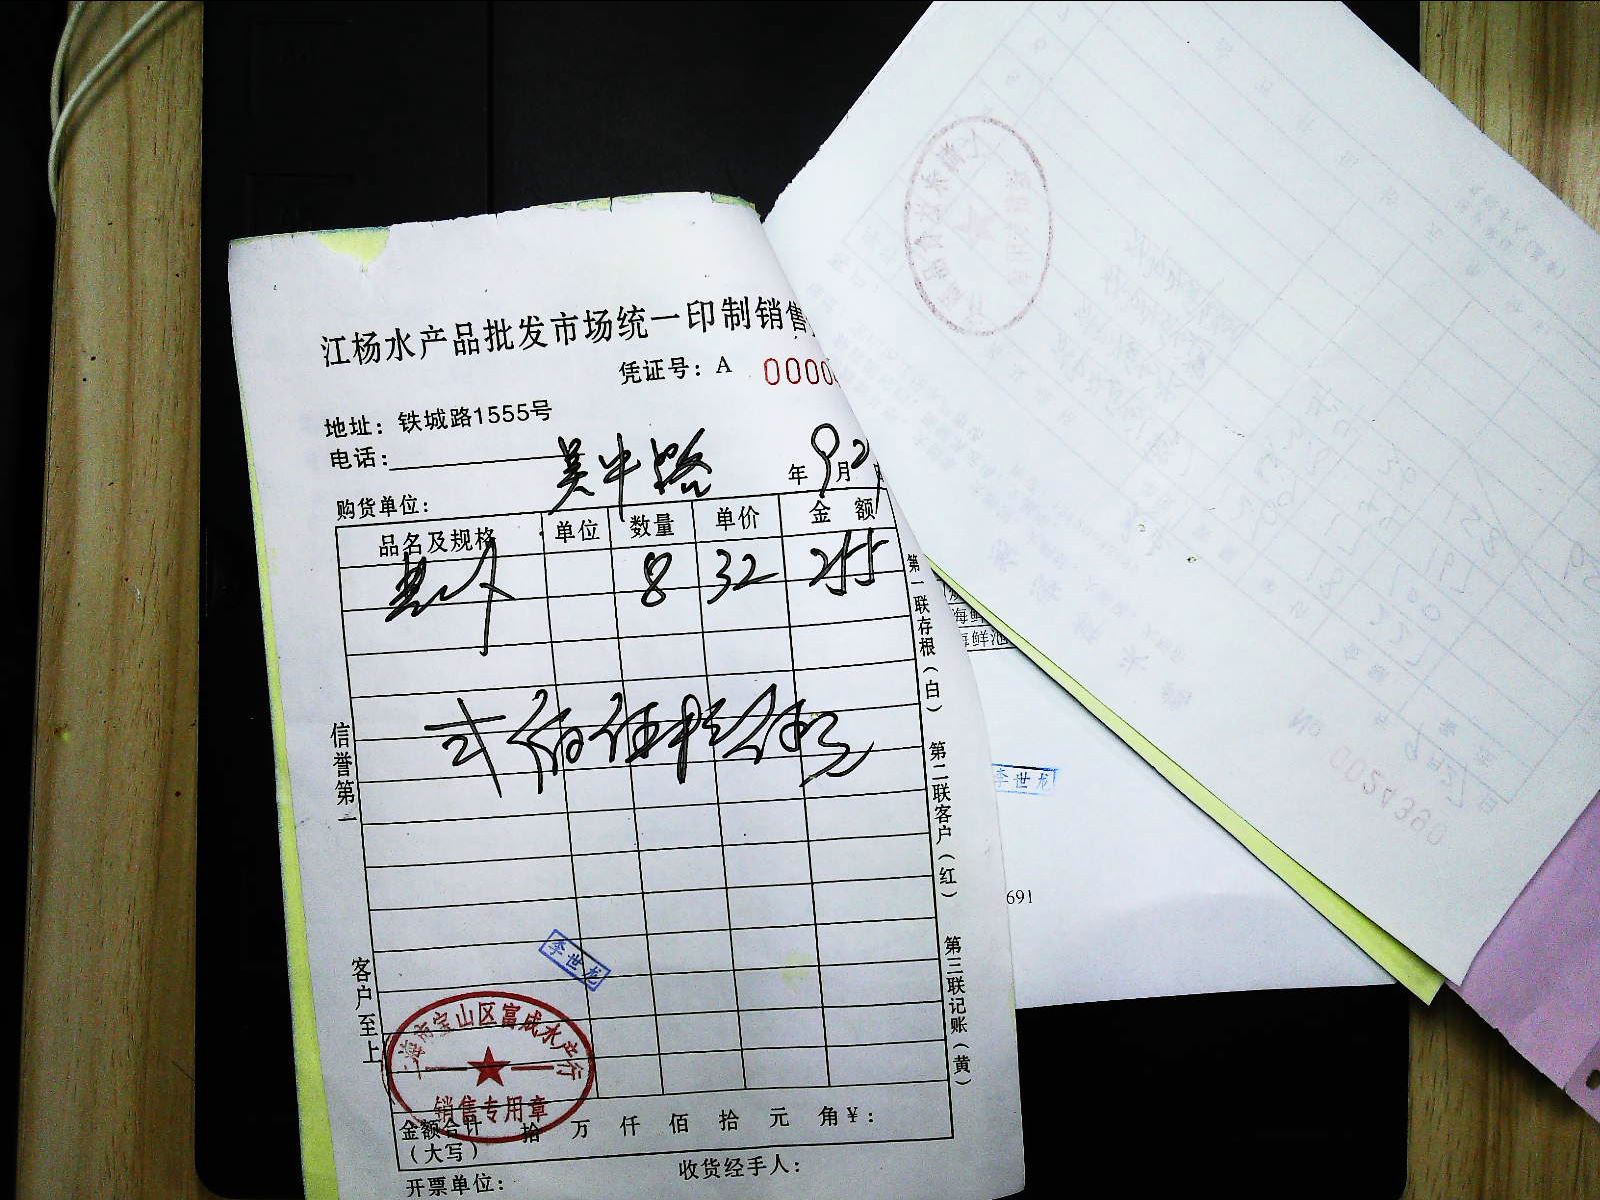 江杨水产品批发市场统一印制销售
凭证号：A 0000
地址：铁城路1555号
电话：
吴中路
年9月2
购货单位：
品名及规格 单位 数量 单价 金额
8 32 255
弍佰伍拾伍元
信誉第一
客户至上
第一联存根（白）
第二联客户（红）
第三联记账（黄）
李世龙
上海市宝山区富成水产行
销售专用章
金额合计（大写） 拾 万 仟 佰 拾 元 角 ￥：
开票单位：
收货经手人：
海鲜
海鲜池
李世龙
691
No 0024360